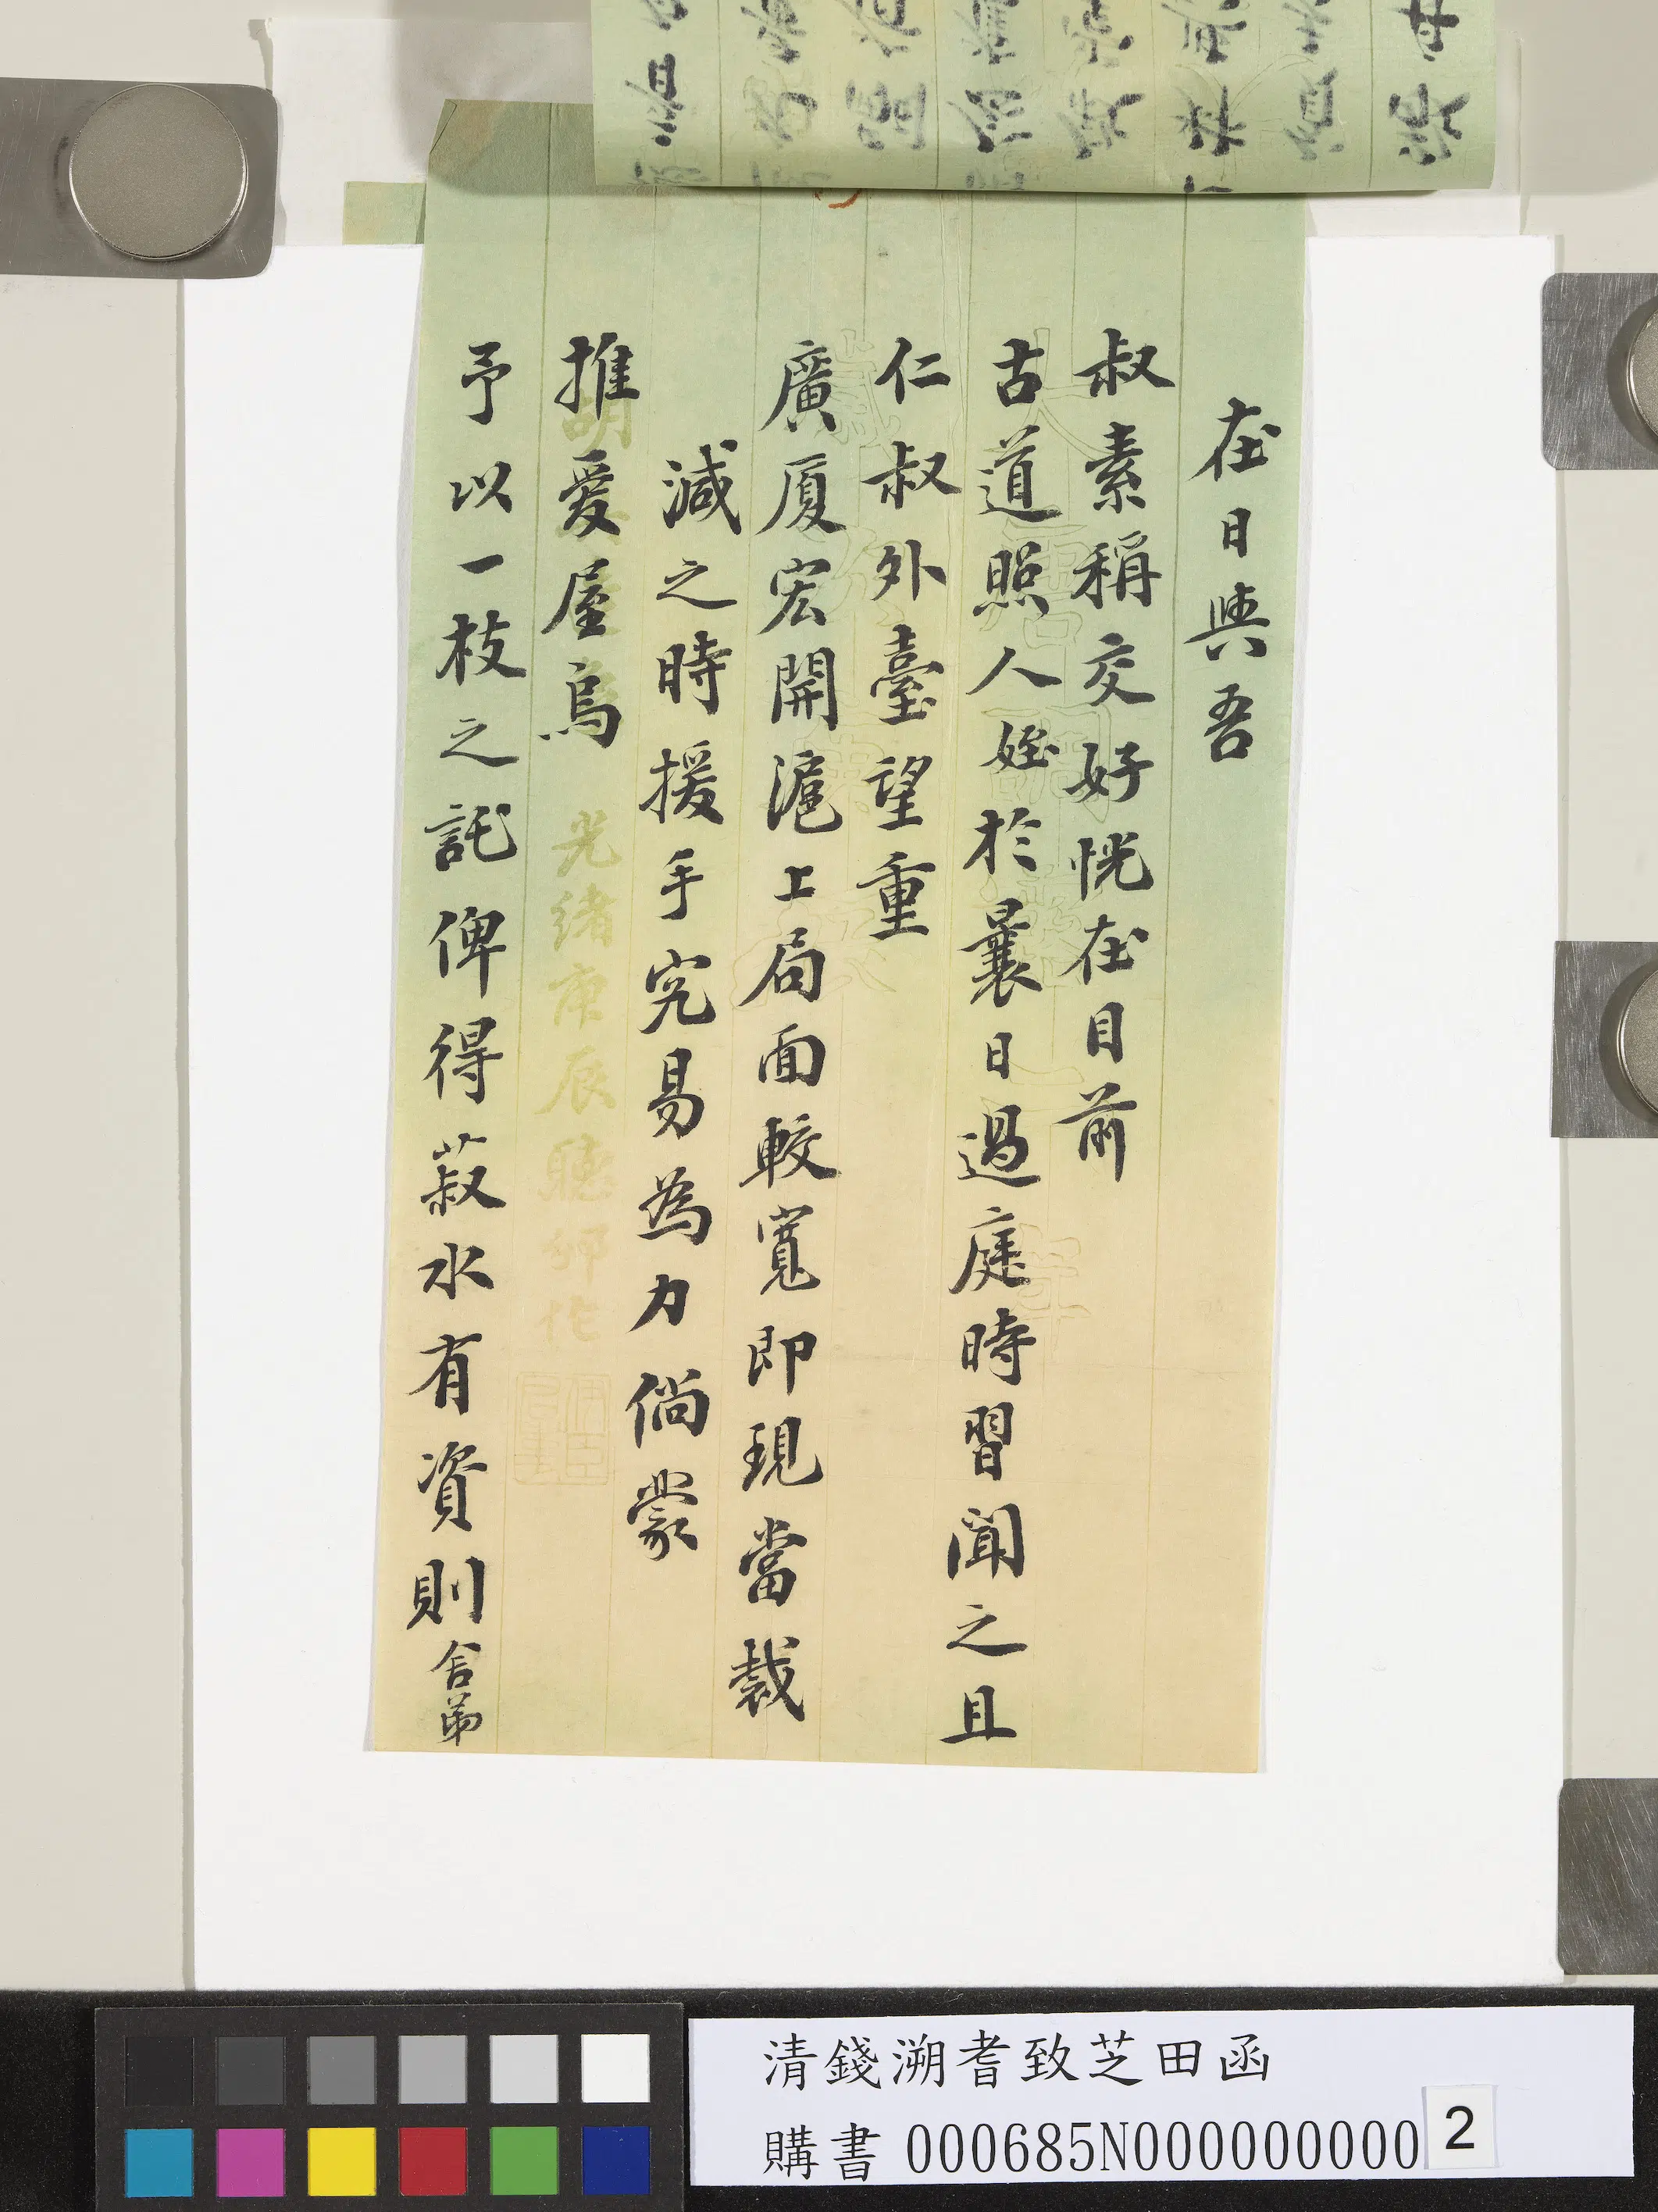 在日與吾
叔素稱交好恍在目前
古道照人姪於曩日過庭時習聞之且
仁叔外臺望重
廣厦宏開滬上局面較寬即現當裁
減之時援手究易為力倘蒙
推愛屋烏
予以一枝之託俾得菽水有資則舍弟
光緒庚辰聽邠作
清錢溯耆致芝田函
購書 000685N000000000 2